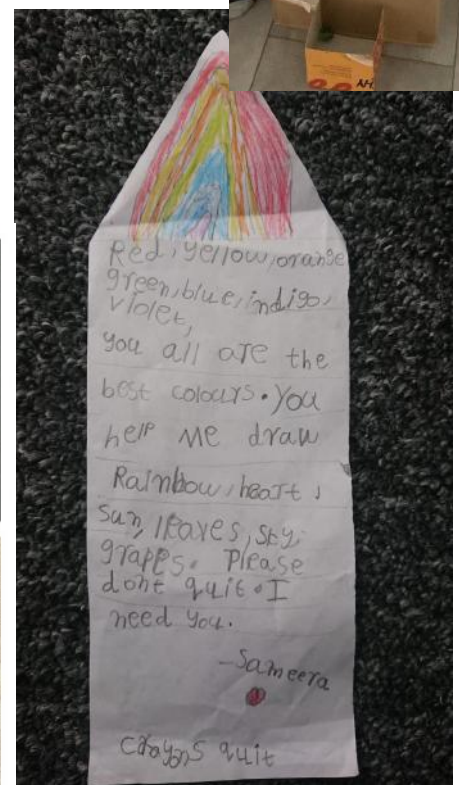 Red, yellow, orange
green, blue, indigo,
violet,
you all are the
best colours. You
help me draw
Rainbow, heart,
sun, leaves, sky,
grapes. Please
dont quit. I
need you.
-Sameera
crayons quit